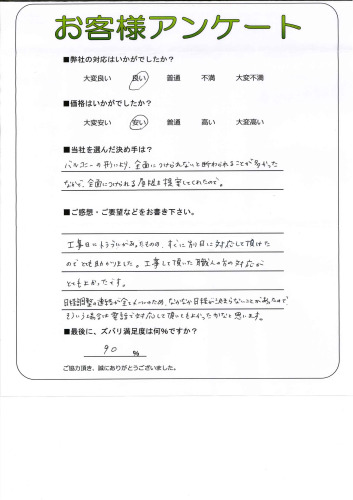 お客様アンケート
■弊社の対応はいかがでしたか?
大変良い 良い 普通 不満 大変不満
■価格はいかがでしたか?
大変安い 安い 普通 高い 大変高い
■当社を選んだ決め手は?
バルコニーの形により、全面につけられないと断わられることが多かった
なかで、全面につけられる屋根を提案してくれたので。
■ご感想・ご要望などをお書き下さい。
工事日にトラブルがあったものの、すぐに別日に対応して頂けた
のでとても助かりました。工事して頂いた職人の方の対応が
とてもよかったです。
日程調整の連絡が全てメールのため、なかなか日程が決まらないことがあったので
そういう場合は電話で対応して頂いてもよかったかなと思います。
■最後に、ズバリ満足度は何%ですか?
90 %
ご協力頂き、誠にありがとうございました。